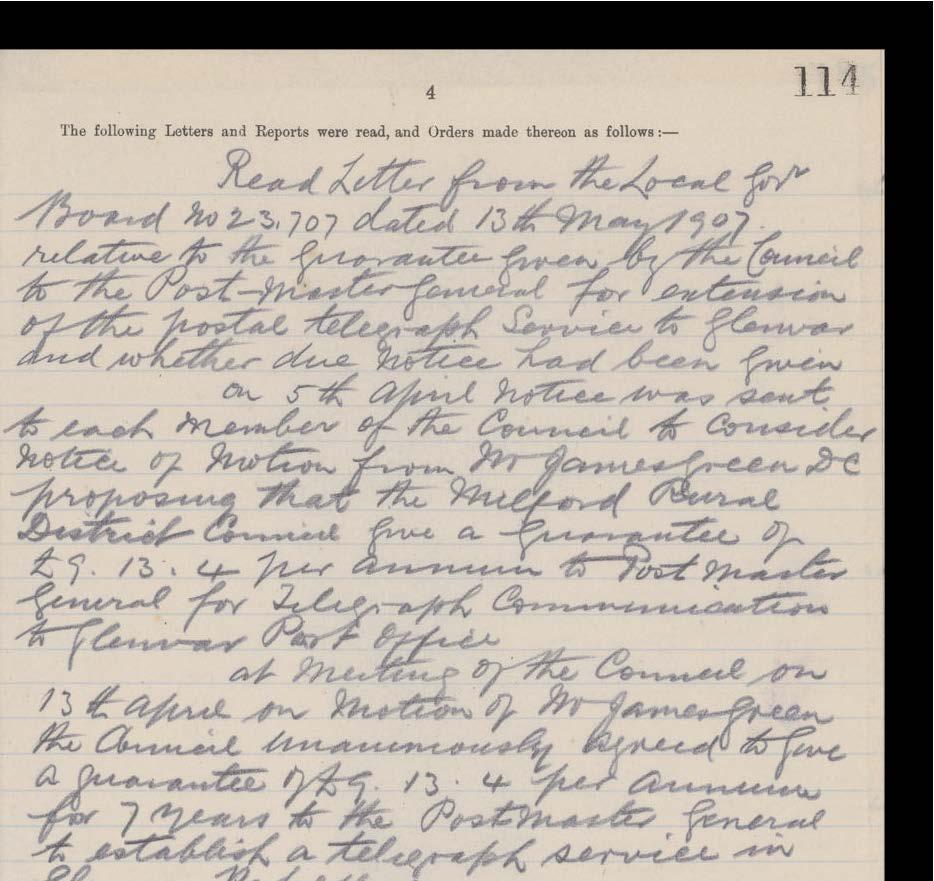 114
4
The following Letters and Reports were read, and Orders made thereon as follows:—
Read Letter from the Local Govt
Board No 23,707 dated 13th May 1907.
relative to the Guarantee given by the Council
to the Post-Master General for extension
of the postal telegraph Service to Glenvar
and whether due Notice had been given
on 5th April Notice was sent
to each Member of the Council to Consider
Notice of Motion from Mr James Green DC
proposing that the Milford Rural
District Council give a Guarantee of
£9. 13. 4 per annum to Post Master
General for Telegraph Communication
to Glenvar Post Office
at Meeting of the Council on
13th April on Motion of Mr James Green
the Council unanimously agreed to give
a guarantee of £9. 13. 4 per annum
for 7 years to the Post Master General
to establish a telegraph service in